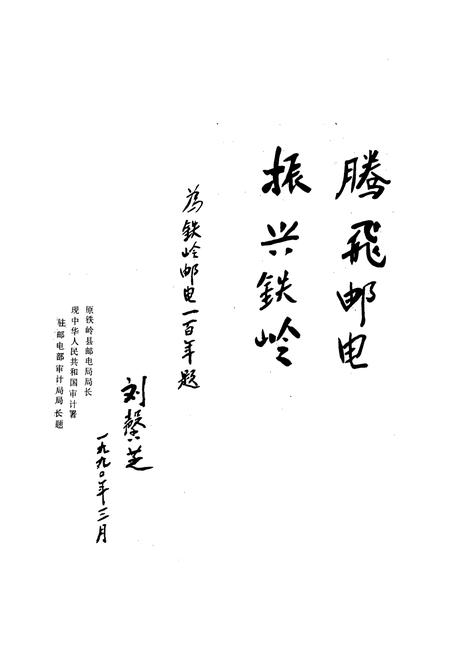 腾飛邮电
振兴铁岭
为铁岭邮电一百年题
刘馨芝
一九九〇年三月
原铁岭县邮电局局长
现中华人民共和国审计署
驻邮电部审计局局长题